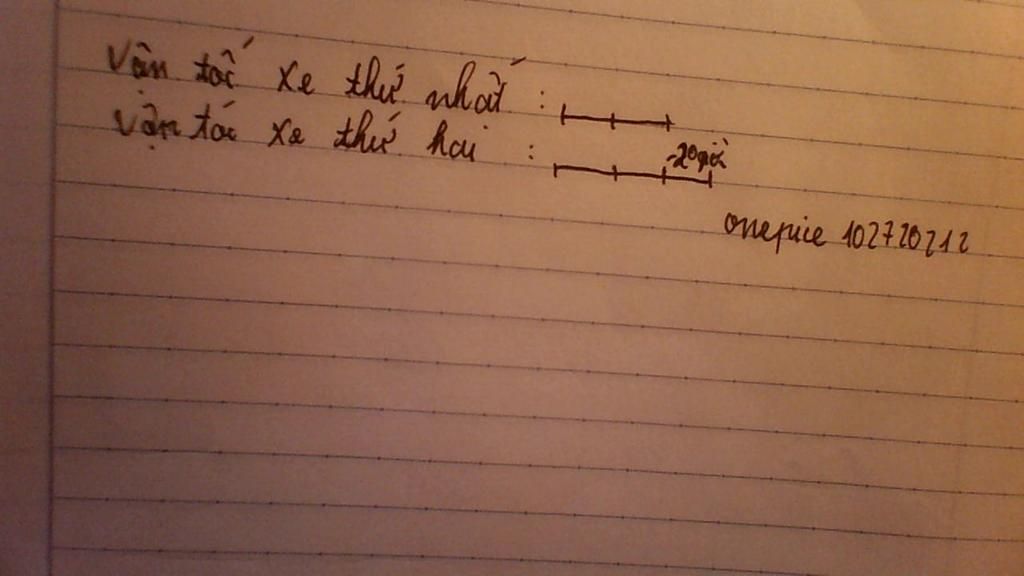 Vận tốc xe thứ nhất :
Vận tốc xe thứ hai :
onepice 102720212